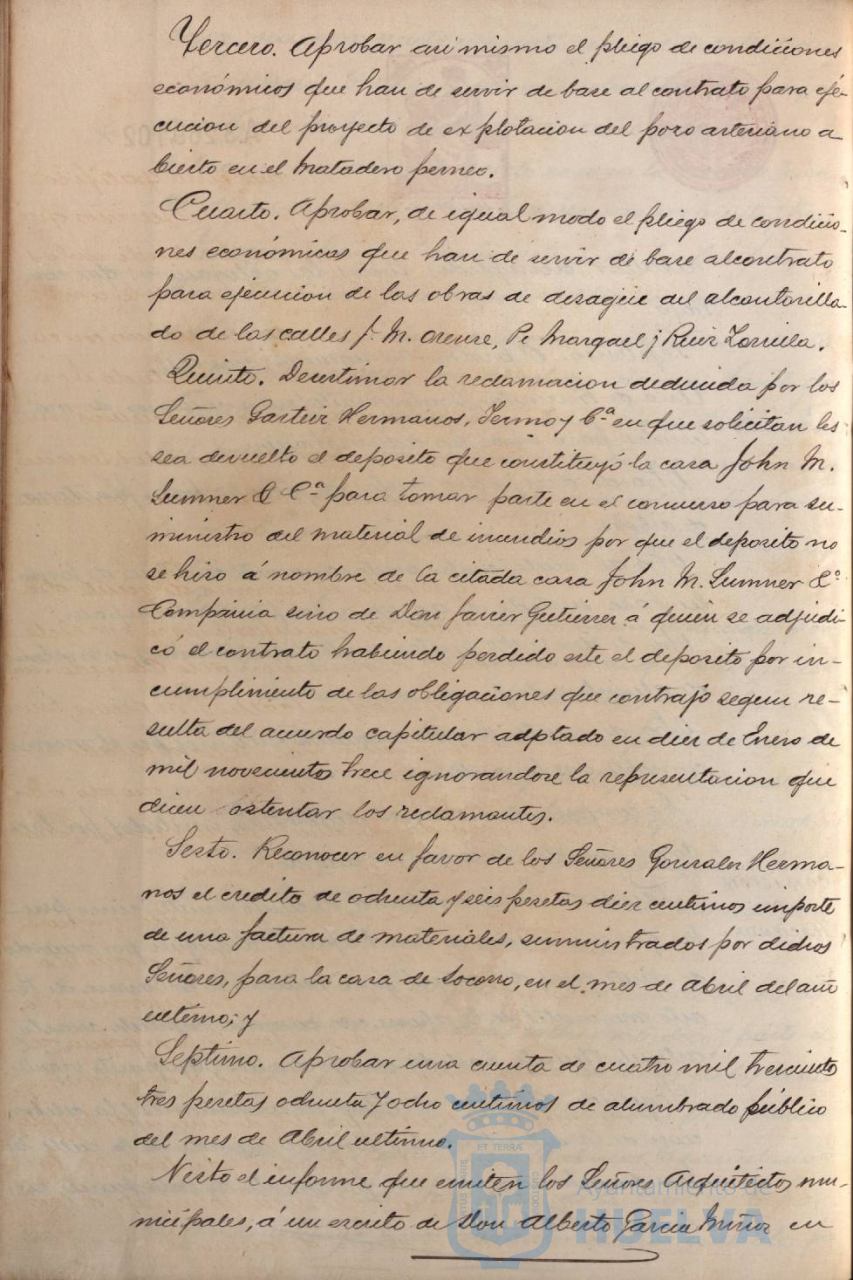 Tercero. Aprobar asi mismo el pliego de condiciones
económicos que han de servir de base al contrato para eje-
cucion del proyecto de explotacion del pozo arteriano a-
bierto en el Matadero
Cuarto. Aprobar, de igual modo el pliego de condicio-
nes económicas que han de servir de base al contrato
para ejecucion de las obras de desagüe del alcantarilla-
do de las calles J. M. Orense, Pi Margael y Ruiz Zorrilla.
Quinto. Desestimar la reclamacion deducida por los
Señores Hermanos, Yermo y Cª en que solicitan les
sea devuelto el deposito que constituyó la casa John M.
Sumner & Cª para tomar parte en el concurso para su-
ministro del material de incendios por que el deposito no
se hizo á nombre de la citada casa John M. Sumner &
Compañia sino de Don Javier Gutierrez á quien se adjudi
có el contrato habiendo perdido este el deposito por in-
cumplimiento de las obligaciones que contrajo segun re-
sulta del acuerdo capitular adptado en diez de Enero de
mil novecientos trece ignorandose la representacion que
dicen ostentar los reclamantes.
Sesto. Reconocer en favor de los Señores Gonzalez Herma-
nos el credito de ochenta y seis pesetas diez centimos importe
de una factura de materiales, suministrados por dichos
Señores, para la casa de Socorro, en el mes de Abril del año
ultimo; y
Septimo. Aprobar una cuenta de cuatro mil trescientos
tres pesetas ochenta y ocho centimos de alumbrado público
del mes de Abril ultimo.
Visto el informe que emiten los Señores Arquitectos mu-
nicipales, á un escrito de Don Alberto Garcia Muñoz en
Ayuntamiento de
HUELVA